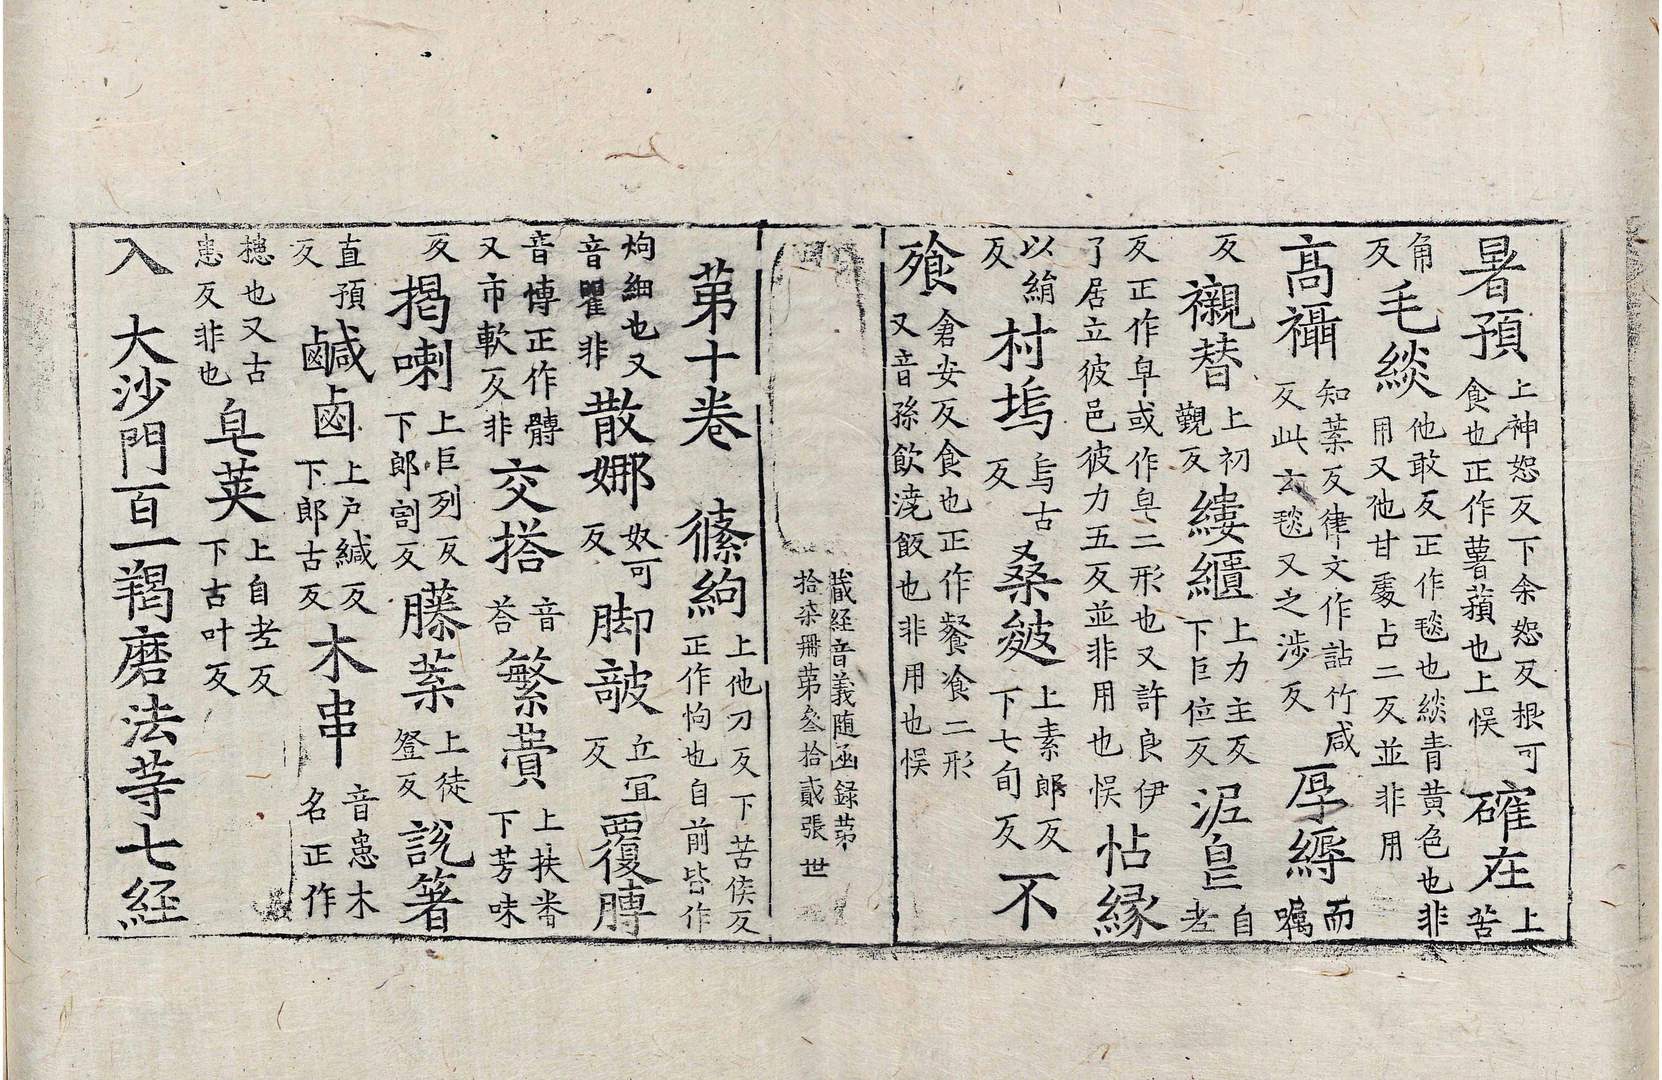 暑預上神恕反下余恕反根可食也正作薯蕷也上悮確在上苦
角反毛緂他敢反正作毯也緂青黄色也非用又他甘處占二反並非用
高襵知葉反律文作詀竹咸反此玄毯又之涉反厚縟而嘱
反襯替上初覲反縷繮上力主反下巨位反泥皀自老
反正作皁或作皂二形也又許良伊了居立彼邑彼力五反並非用也悮帖緣
以絹反村塢烏古反桑皴上素郎反下七旬反不
飱倉安反食也正作餐飡二形又音孫飲澆飯也非用也悮
藏經音義随函録苐拾柒冊苐叄拾貳張 世
苐十卷 絛絇上他刀反下苦侯反正作怐也自前皆作
絇細也又音瞿非散娜奴可反脚敧丘冝反覆膞
音愽正作髆又市軟反非交搭音荅繁費上扶㡒下芳味
反揭喇上巨列反下郎割反藤葉上徒登反說箸
直預反鹹鹵上户緘反下郎古反木串音患木名正作
槵也又古患反非也皁莢上自老反下古叶反
入 大沙門百一羯磨法䓁七経